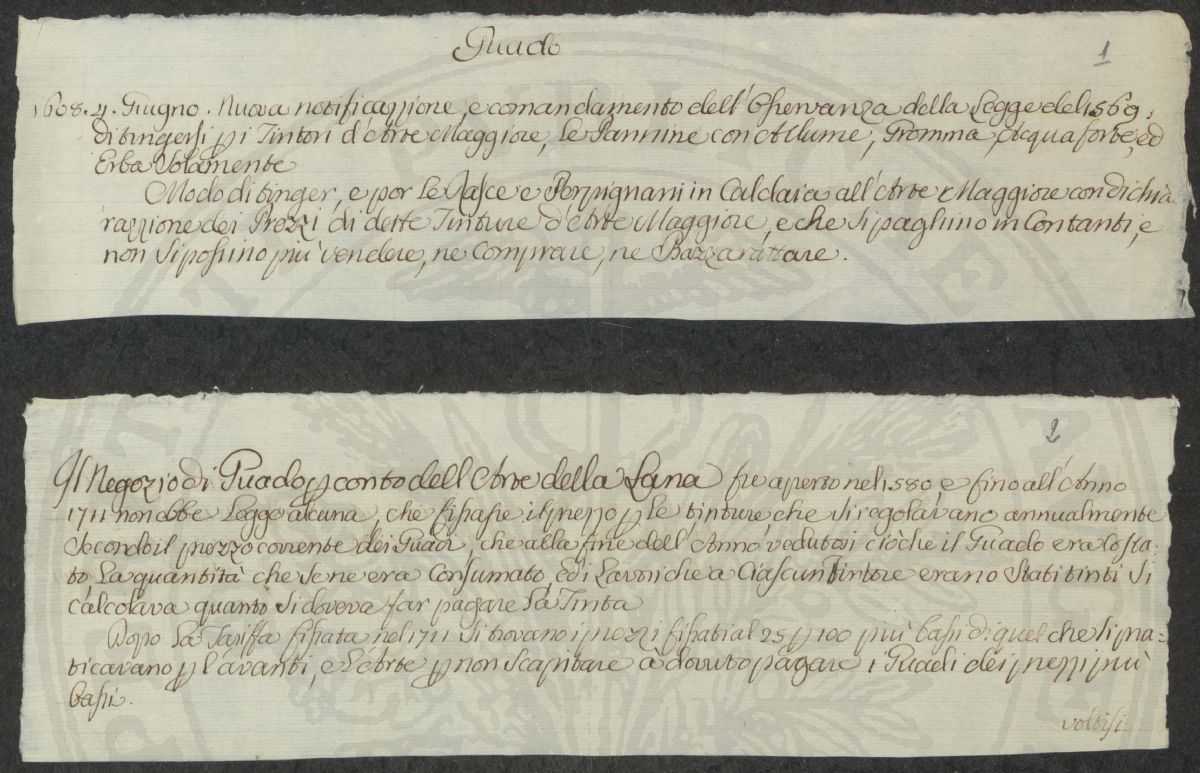 Guado
1
1608. 4. Giugno. Nuova notificazzione, e comandamento dell'Osservanza della Legge del 1569,
di tingersi p i Tintori d'Arte Maggiore, le Pannine con Allume, Gromma, Acqua forte, ed
Erba Solamente
Modo di tinger, e por le Rasce e Perpignani in Caldaia all'Arte Maggiore con dichia
razzione dei Prezzi di dette Tinture d'Arte Maggiore, e che si paghino in Contanti, e
non si possino più vendere, ne Comprare, ne Bazzarattare.
2
Il Negozio di Guado p conto dell'Arte della Lana fu aperto nel 1580, e fino all'Anno
1711 non ebbe Legge alcuna, che fissasse il prezzo p le tinture, che si regolavano annualmente
Secondo il prezzo corrente dei Guadi, che alla fine dell'Anno vedutosi ciò che il Guado era costa-
to La quantità che se ne era Consumato, ed i Lavori che a Ciascun tintore erano Stati tinti si
calcolava quanto si doveva far pagare La Tinta
Dopo La Tariffa fissata nel 1711 si trovano i prezzi fissati al 25 p 100 più bassi di quel che si pra-
ticavano p l'avanti, e L'Arte p non scapitare à dovuto pagare i Guadi dei prezzi più
bassi.
voltisi